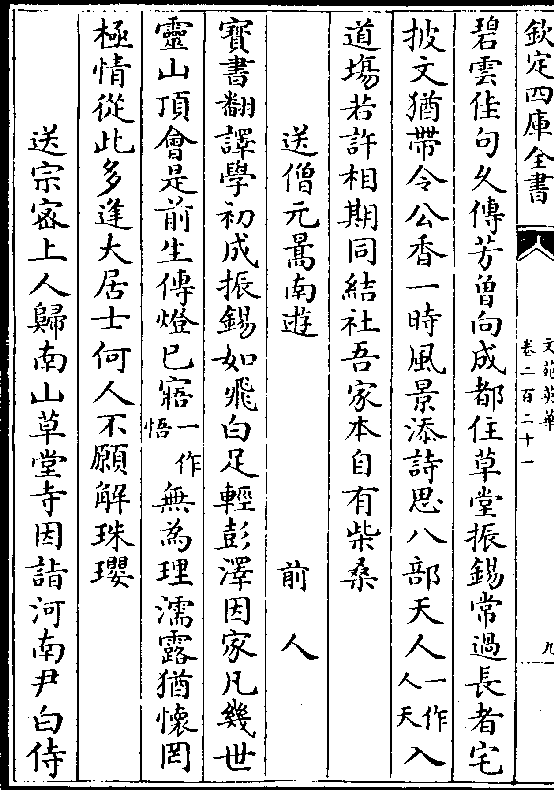 欽定四庫全書
文苑英華
卷二百二十一
九
碧雲佳句久傳芳曾向成都住草堂振錫常過長者宅
披文猶帶令公香一時風景添詩思八部天人一作人天入
道場若許相期同結社吾家本自有柴桑
送僧元暠南遊
前人
寳書翻譯學初成振錫如飛白足輕彭澤因家凡幾世
靈山頂會是前生傳燈已寤一作悟無為理濡露猶懷罔
極情從此多逢大居士何人不願解珠瓔
送宗宻上人歸南山草堂寺因詣河南尹白侍